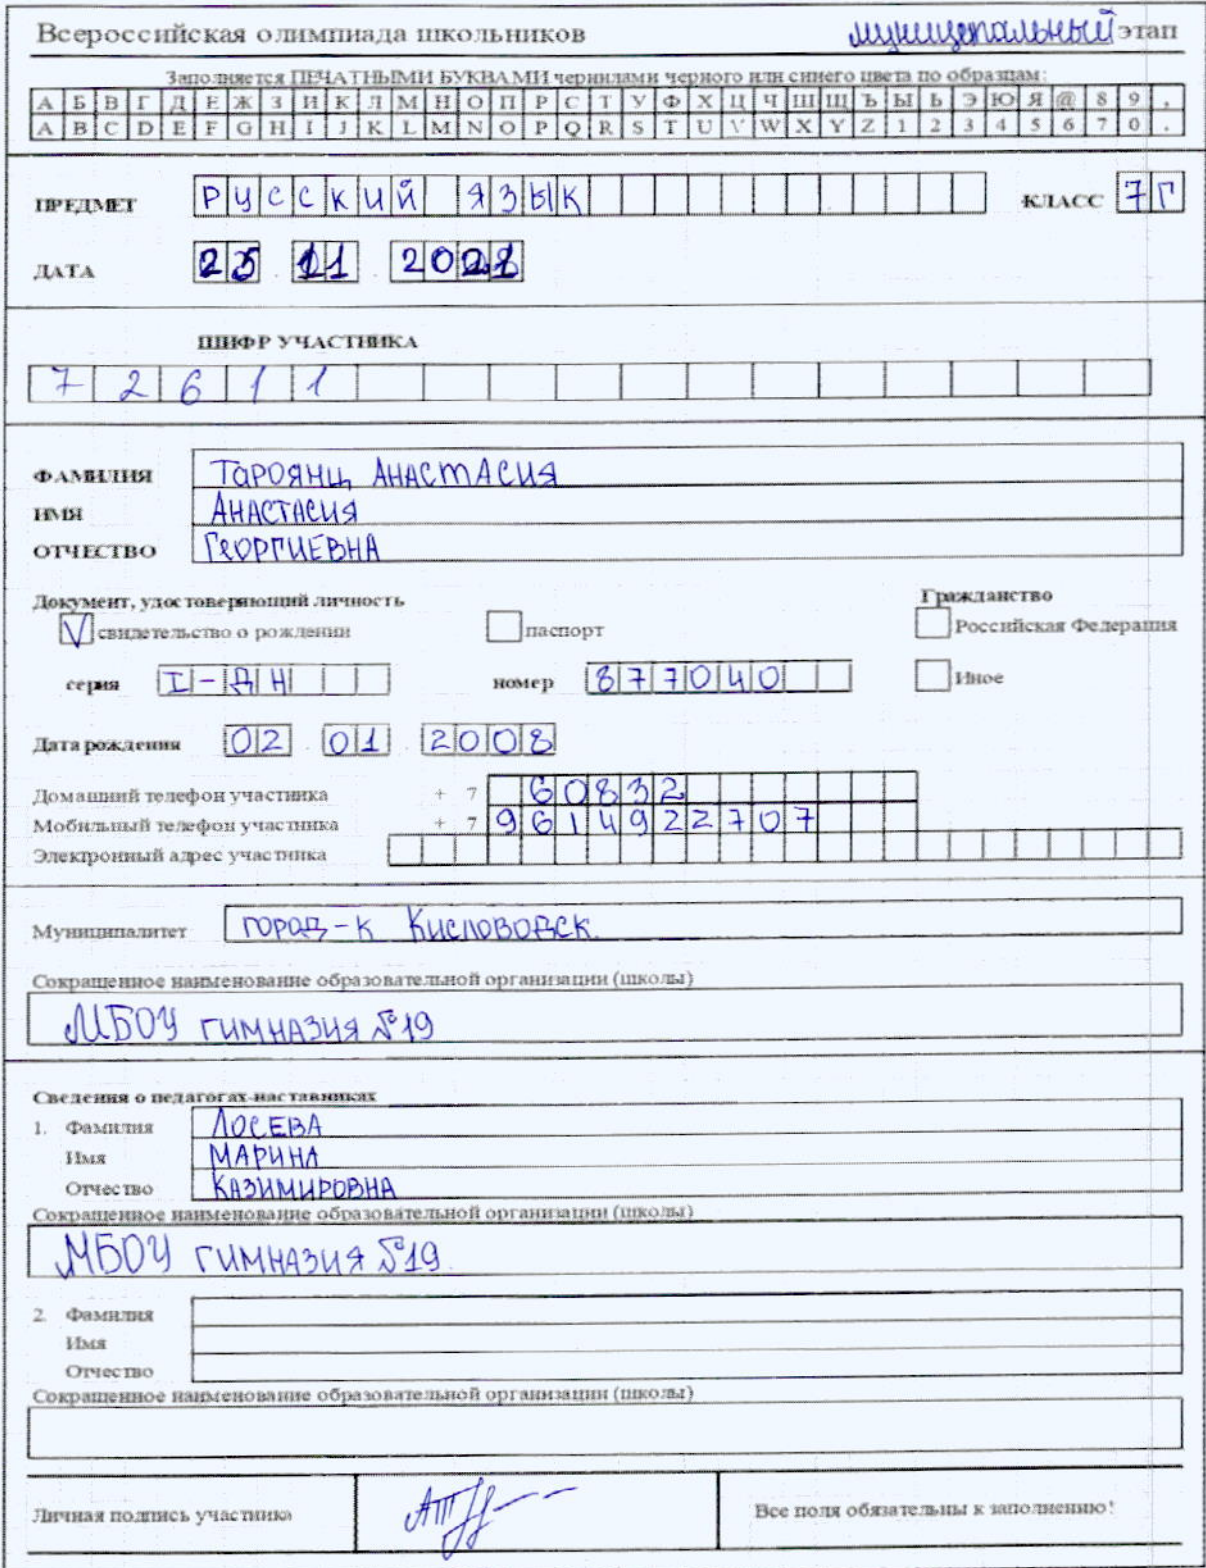 Всероссийская олимпиада школьников муниципальный этап
Заполняется ПЕЧАТНЫМИ БУКВАМИ чернилами черного или синего цвета по образцам:
А Б В Г Д Е Ж З И К Л М Н О П Р С Т У Ф Х Ц Ч Ш Щ Ъ Ы Ь Э Ю Я @ 8 9 ,
A B C D E F G H I J K L M N O P Q R S T U V W X Y Z 1 2 3 4 5 6 7 0 .
ПРЕДМЕТ РУССКИЙ ЯЗЫК КЛАСС 7Г
ДАТА 25.11.2021
ШИФР УЧАСТНИКА
72611
ФАМИЛИЯ ТАРОЯНЦ АНАСТАСИЯ
ИМЯ АНАСТАСИЯ
ОТЧЕСТВО ГЕОРГИЕВНА
Документ, удостоверяющий личность Гражданство
V свидетельство о рождении паспорт Российская Федерация
серия I-ДН номер 877040 Иное
Дата рождения 02.01.2008
Домашний телефон участника +7 60832
Мобильный телефон участника +7 9614922707
Электронный адрес участника
Муниципалитет город-к Кисловодск
Сокращенное наименование образовательной организации (школы)
МБОУ ГИМНАЗИЯ №19
Сведения о педагогах-наставниках
1. Фамилия ЛОСЕВА
Имя МАРИНА
Отчество КАЗИМИРОВНА
Сокращенное наименование образовательной организации (школы)
МБОУ ГИМНАЗИЯ №19
2. Фамилия
Имя
Отчество
Сокращенное наименование образовательной организации (школы)
Личная подпись участника Все поля обязательны к заполнению!